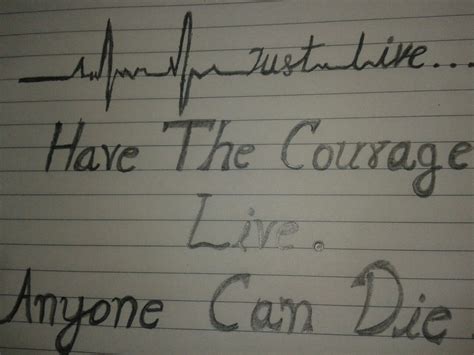 Just Live...
Have The Courage
Live.
Anyone Can Die